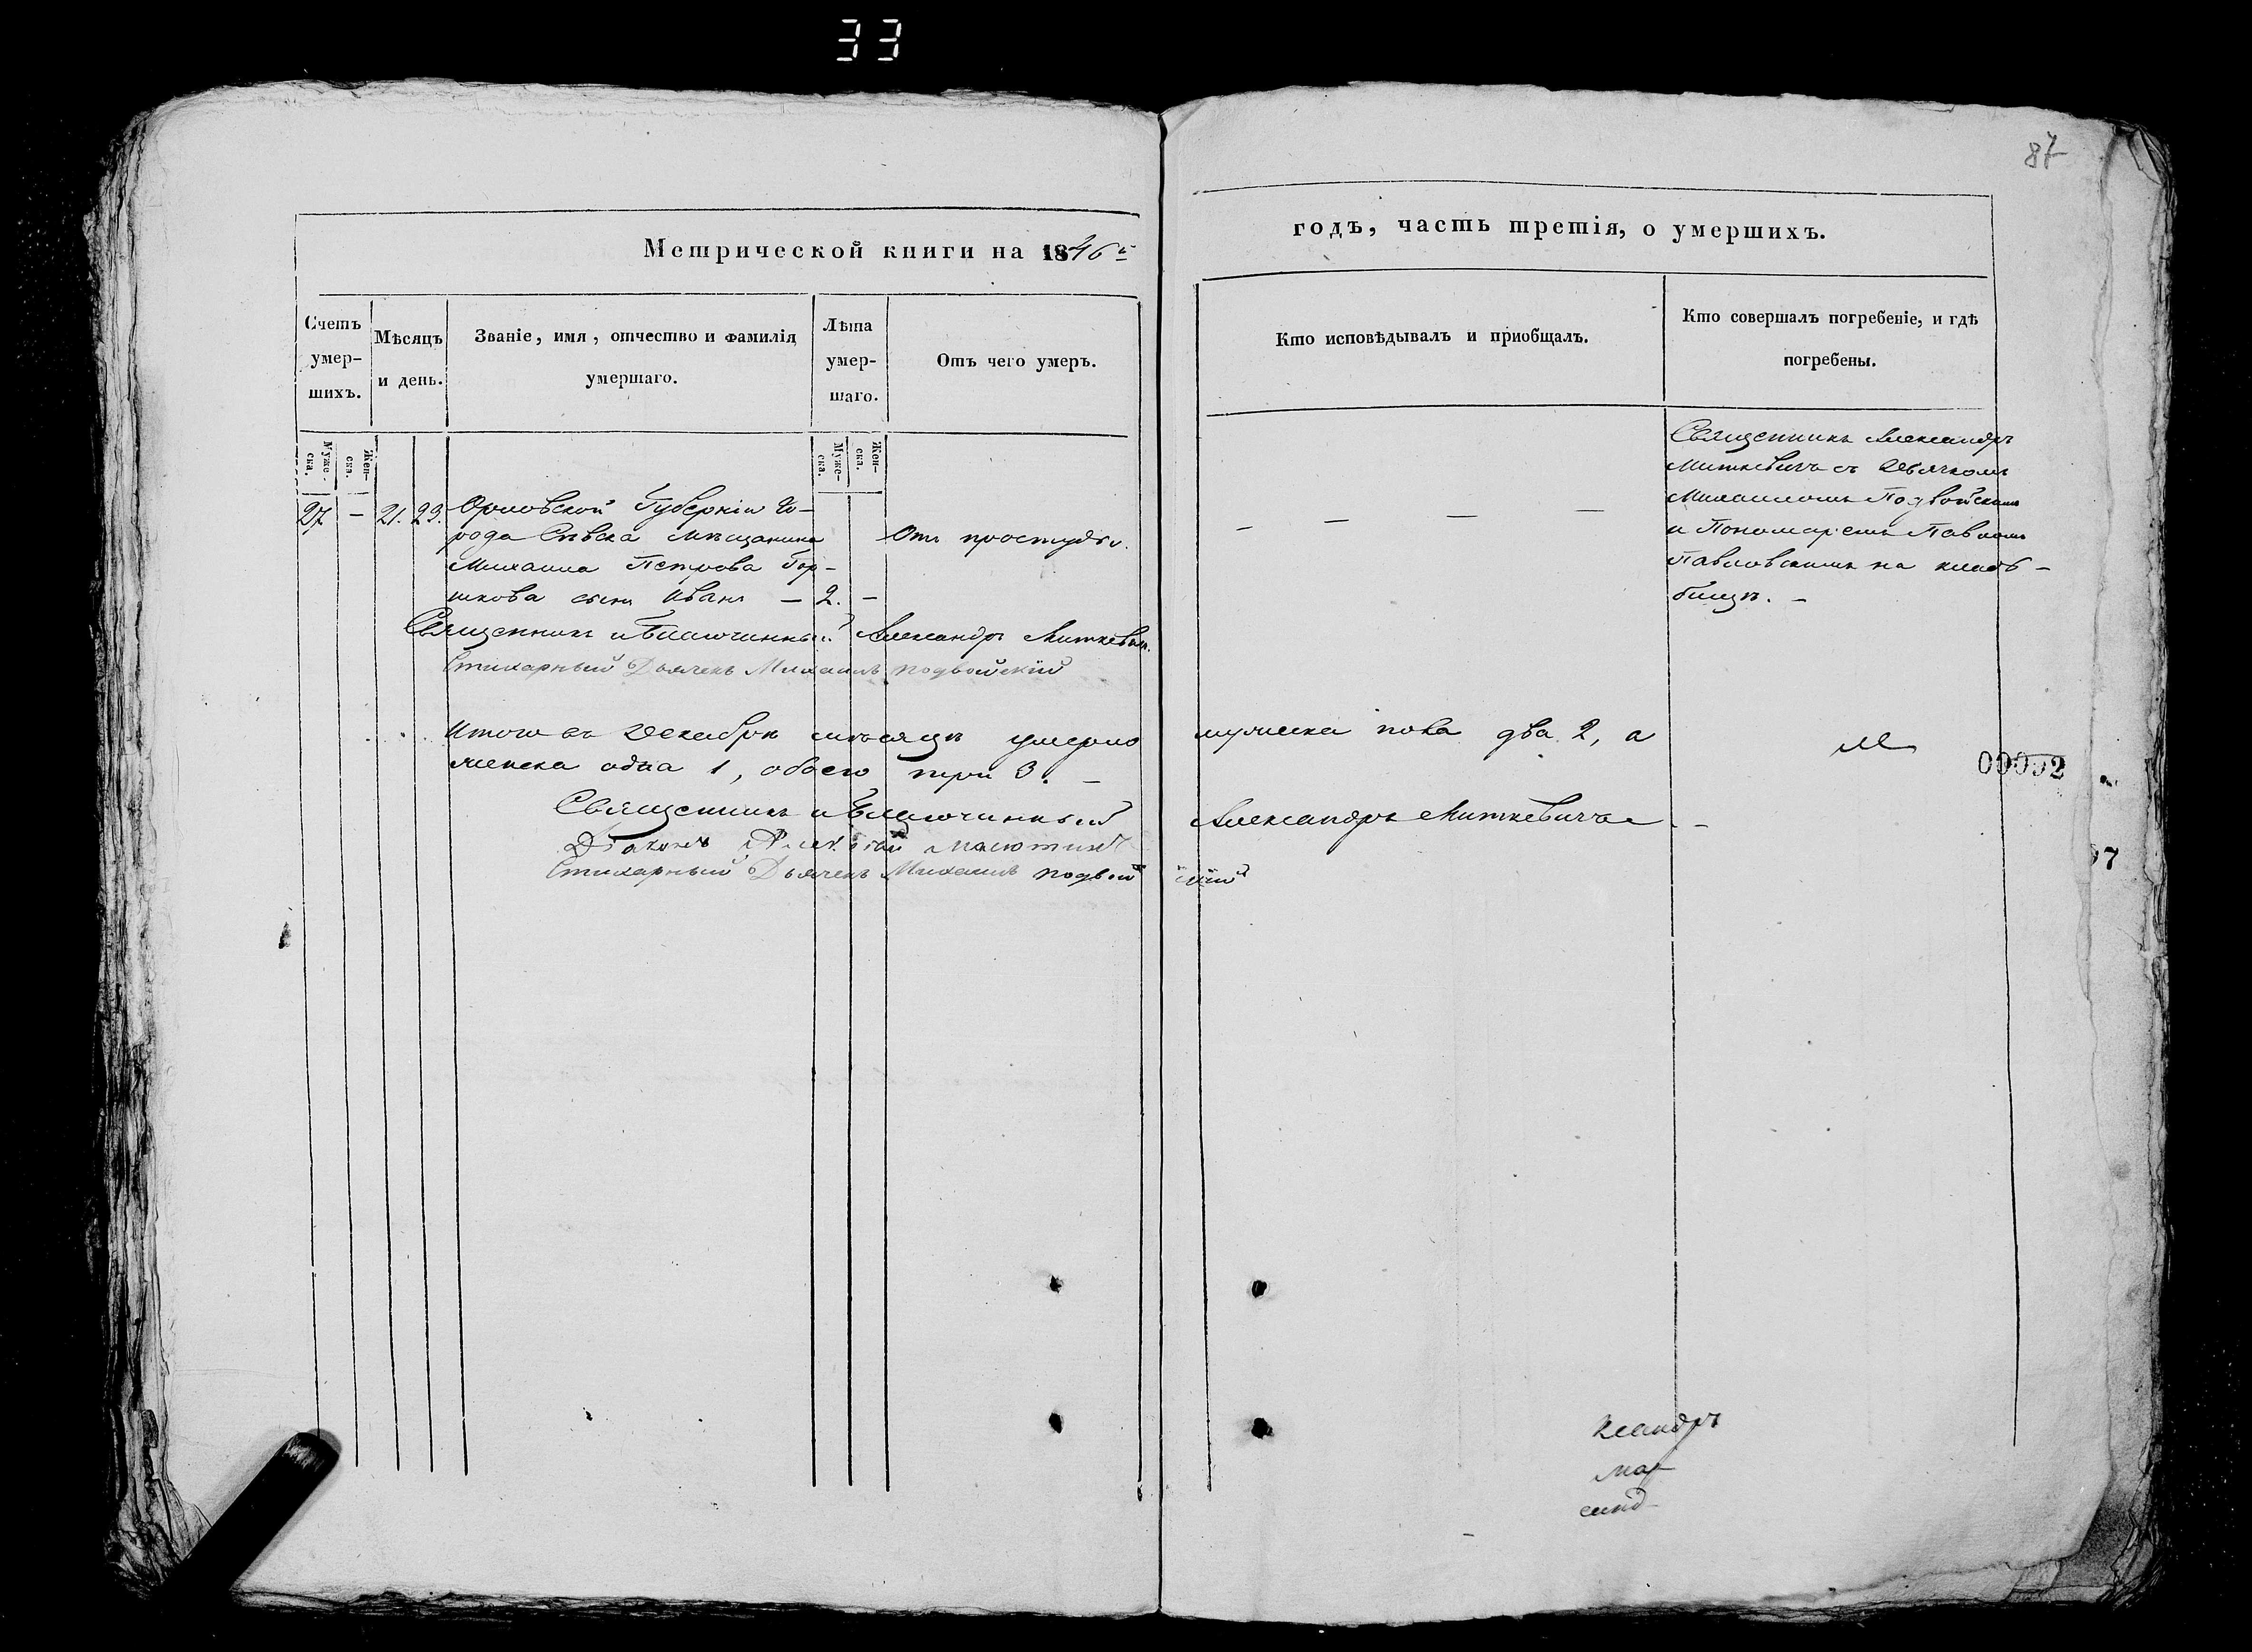 33
87
Метрической книги на 1846й
годъ, часть третія, о умершихъ.
Счетъ умер-шихъ.
Мѣсяцъ и день.
Званіе, имя, отчество и фамилія умершаго.
Лѣта умер-шаго.
Отъ чего умеръ.
Кто исповѣдывалъ и приобщалъ.
Кто совершалъ погребеніе, и гдѣ погребены.
Муже-ска.
Жен-ска.
Муже-ска.
Жен-ска.
27 – 21. 23. Орловской Губерніи Го-
рода Сѣвска мѣщанина
Михаила Петрова Гор-
шкова сынъ Иванъ – 2. –
Отъ простуды.
– – – –
Священникъ Александръ
Миткевичъ съ Дьячкомъ
Михаиломъ Подвойскимъ
и Пономаремъ Павломъ
Павловскимъ на кладб-
бищѣ. –
Священникъ и Благочинный Александръ Миткевичъ.
Стихарный Дьячекъ Михаилъ подвойскій
Итого въ Декабрѣ мѣсяцѣ умерло мужеска пола два 2, а
женска одна 1, обоего три 3. –
00092
Священникъ и Благочинный Александръ Миткевичъ –
Діаконъ Малютинъ
Стихарный Дьячекъ Михаилъ подвойскій
97
ксандръ